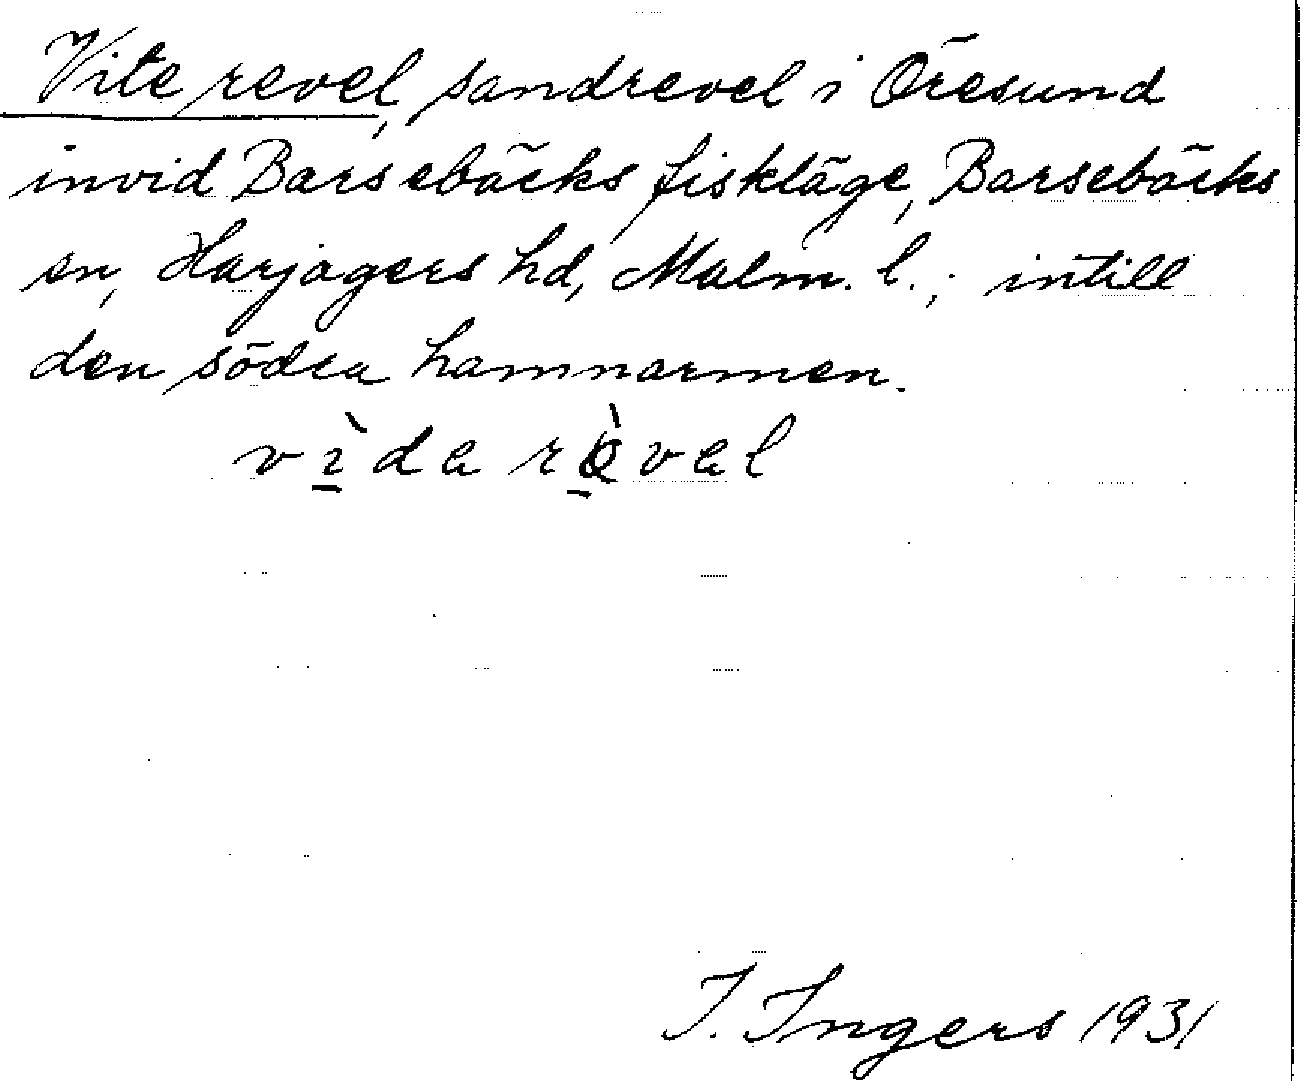 Vite revel, sandrevel i Öresund
invid Barsebäcks fiskläge, Barsebäcks
sn, Harjagers hd, Malm. l.; intill
den södra hamnarmen.
vìda rèval
I. Ingers 1931